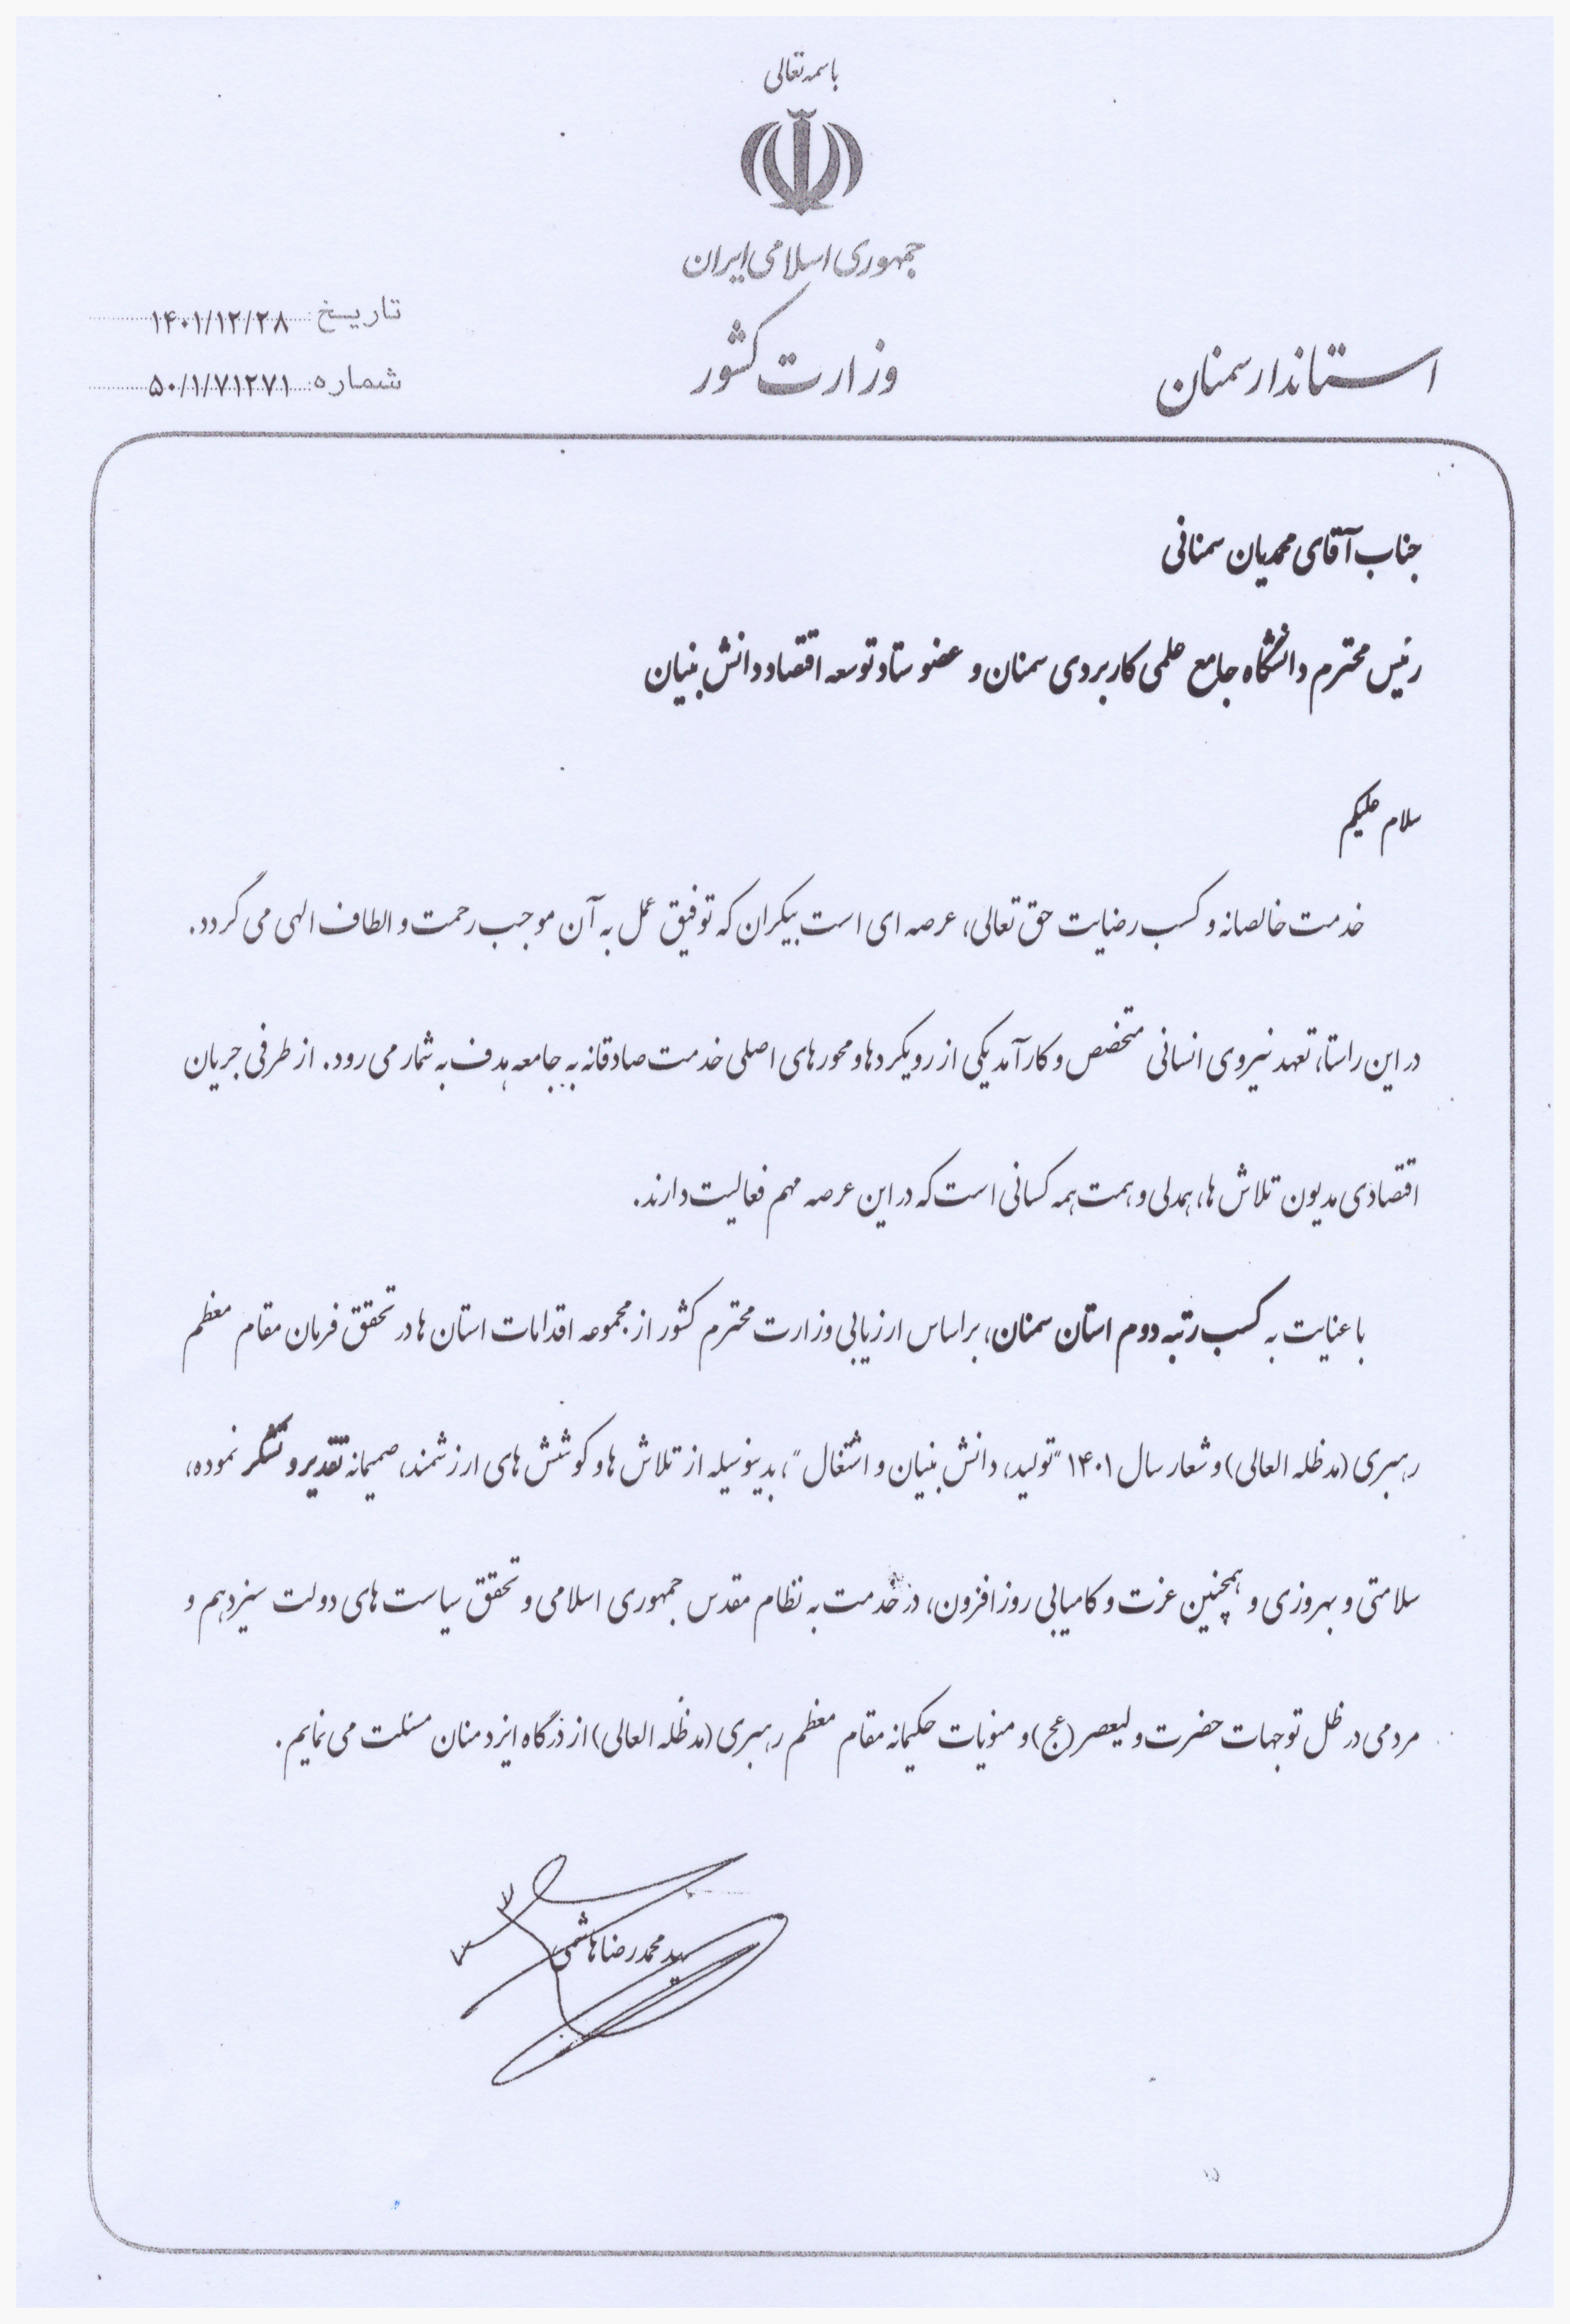 باسمه تعالی
جمهوری اسلامی ایران
وزارت کشور
استاندار سمنان
تاریخ: ۱۴۰۱/۱۲/۲۸
شماره: ۵۰/۱/۷۱۲۷۱
جناب آقای محمدیان سمنانی
رئیس محترم دانشگاه جامع علمی کاربردی سمنان و عضو ستاد توسعه اقتصاد دانش بنیان
سلام علیکم
خدمت خالصانه و کسب رضایت حق تعالی، عرصه ای است بیکران که توفیق عمل به آن موجب رحمت و الطاف الهی می گردد.
در این راستا، تعهد نیروی انسانی متخصص و کارآمد یکی از رویکردها و محورهای اصلی خدمت صادقانه به جامعه هدف به شمار می رود. از طرفی جریان
اقتصادی مدیون تلاش ها، همدلی و همت همه کسانی است که در این عرصه مهم فعالیت دارند.
با عنایت به کسب رتبه دوم استان سمنان، براساس ارزیابی وزارت محترم کشور از مجموعه اقدامات استان ها در تحقق فرمان مقام معظم
رهبری (مدظله العالی) و شعار سال ۱۴۰۱ "تولید، دانش بنیان و اشتغال"، بدینوسیله از تلاش ها و کوشش های ارزشمند، صمیمانه تقدیر و تشکر نموده،
سلامتی و بهروزی و همچنین عزت و کامیابی روزافزون، در خدمت به نظام مقدس جمهوری اسلامی و تحقق سیاست های دولت سیزدهم و
مردمی در ظل توجهات حضرت ولیعصر (عج) و منویات حکیمانه مقام معظم رهبری (مدظله العالی) از درگاه ایزد منان مسئلت می نمایم.
سید محمدرضا هاشمی